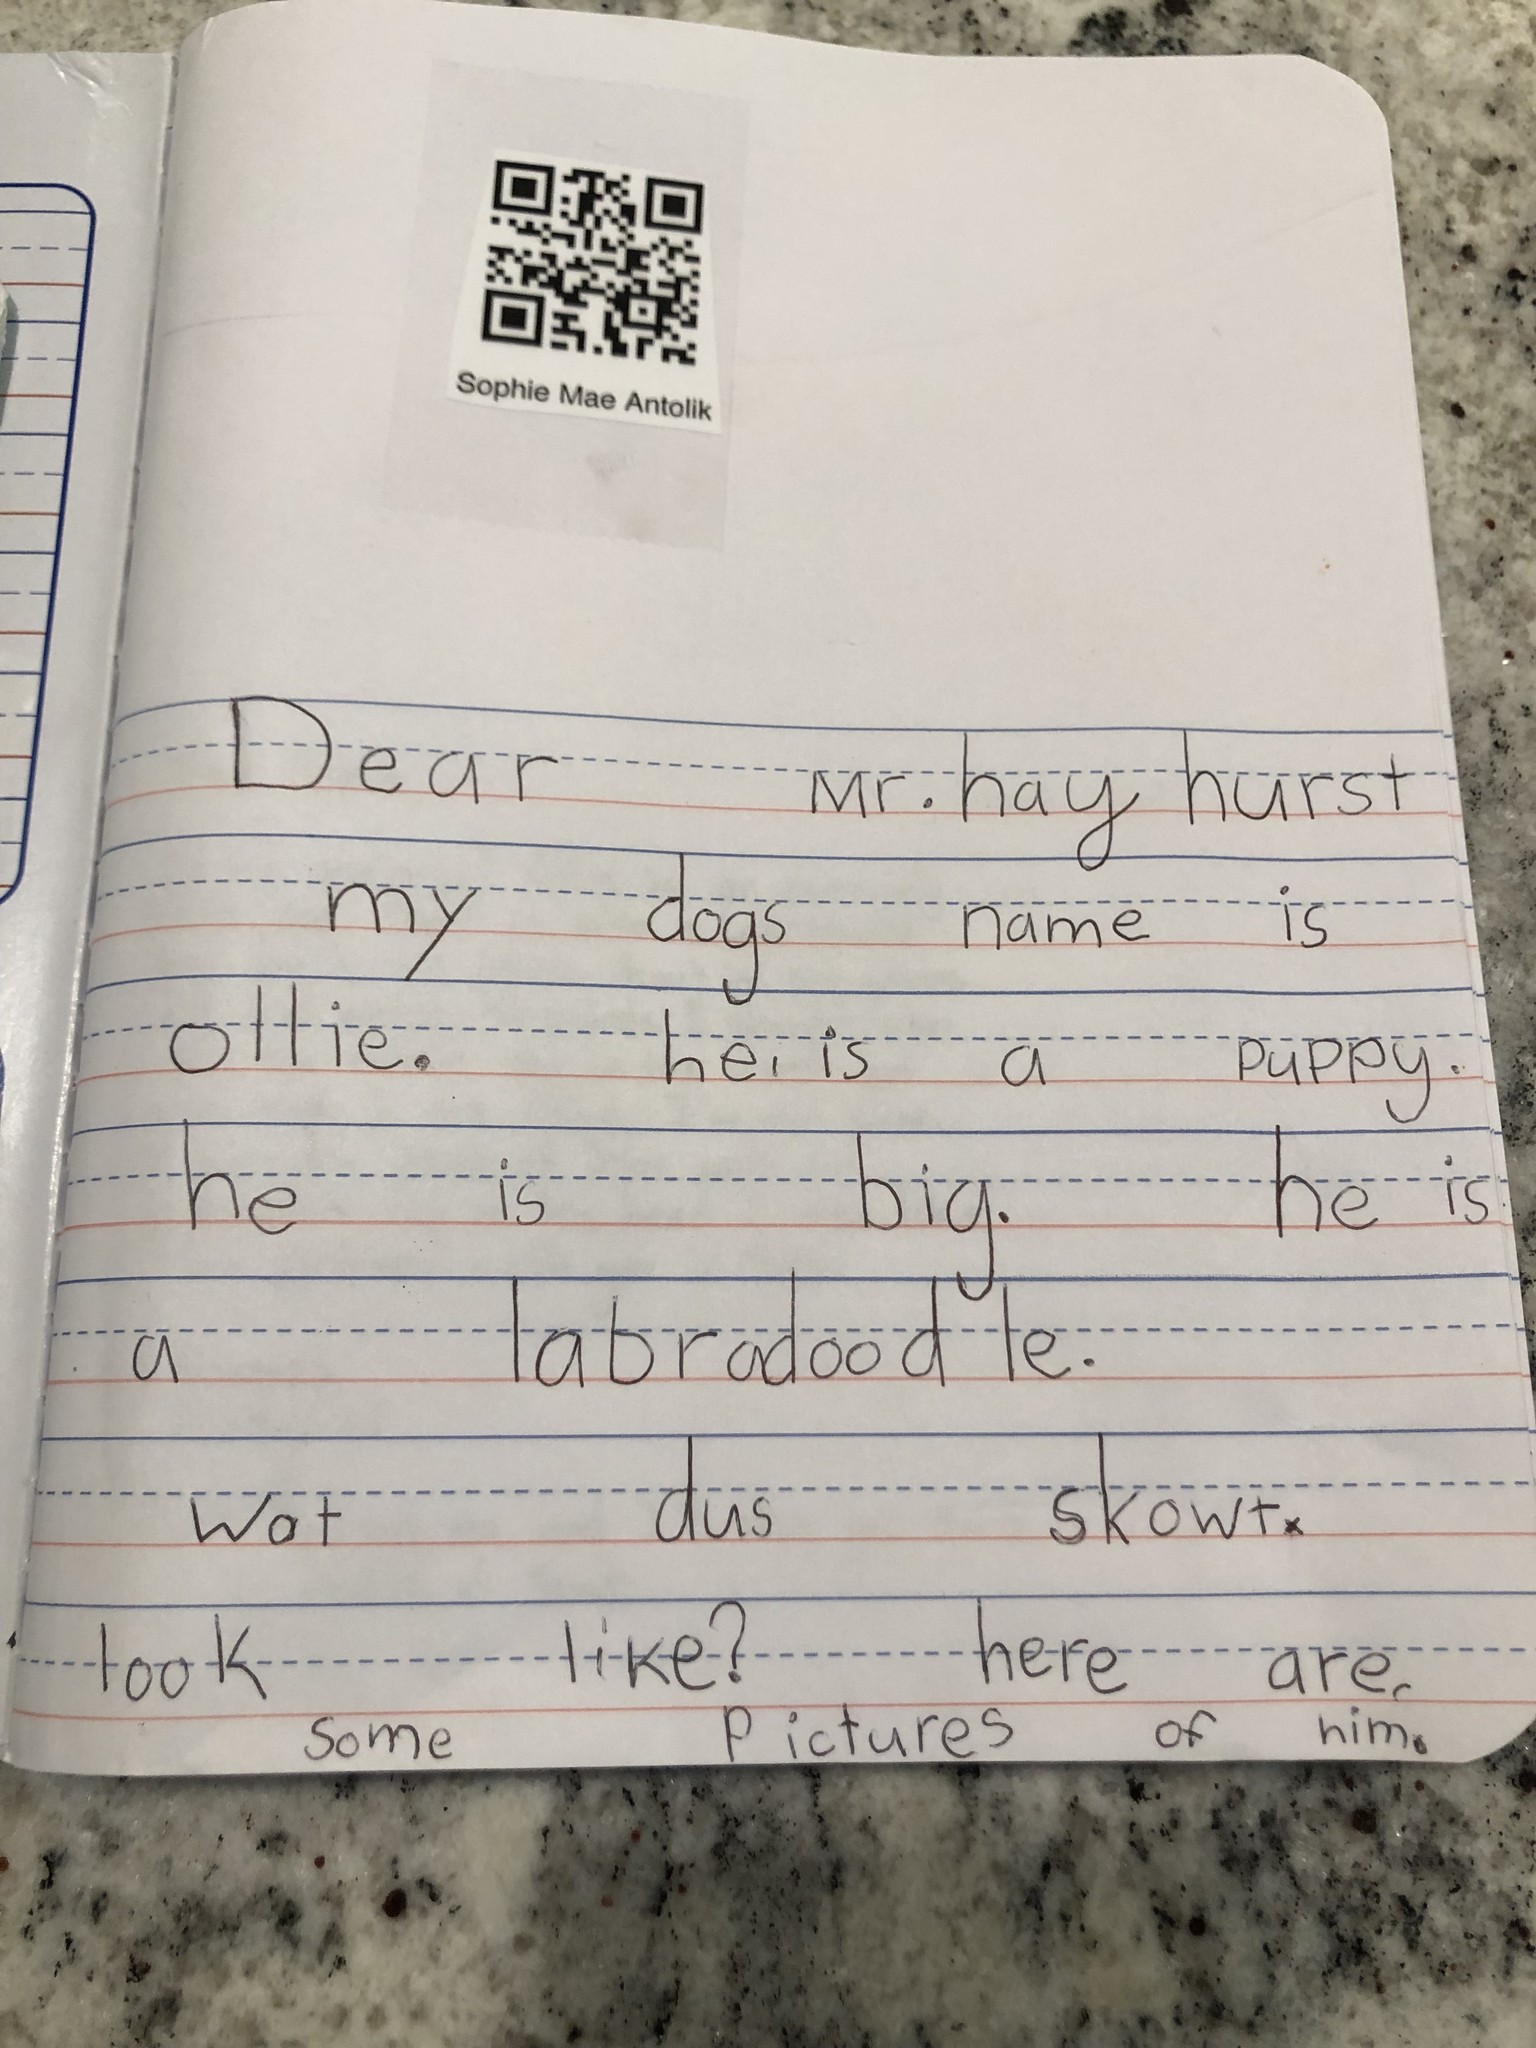 Sophie Mae Antolik
Dear Mr. hay hurst
my dogs name is
ollie. he. is a puppy.
he is big. he is
a labradoodle.
Wat dus skowt.
look like? here are
some Pictures of him.